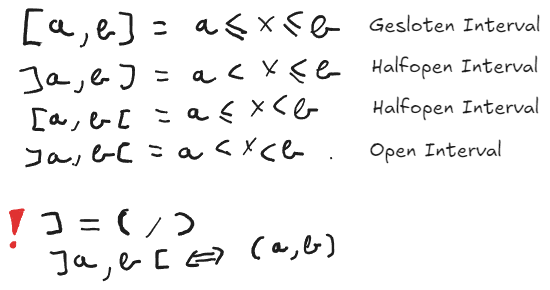 [a, b] = a ≤ x ≤ b Gesloten Interval
]a, b] = a < x ≤ b Halfopen Interval
[a, b[ = a ≤ x < b Halfopen Interval
]a, b[ = a < x < b . Open Interval
! ] = ( / )
]a, b[ ⇔ (a, b)